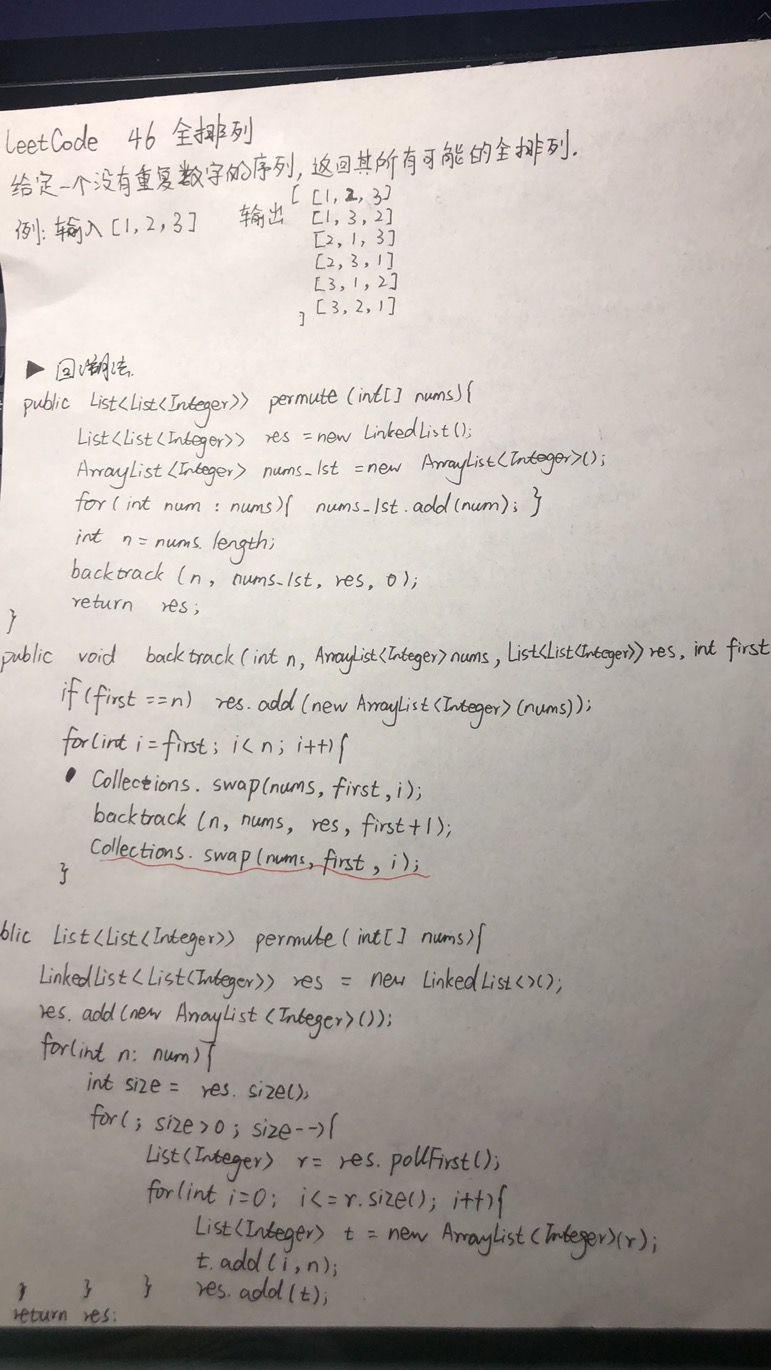 LeetCode 46 全排列
给定一个没有重复数字的序列,返回其所有可能的全排列.
例:输入[1,2,3] 输出 [ [1,2,3]
[1,3,2]
[2,1,3]
[2,3,1]
[3,1,2]
] [3,2,1]
▶ 回溯法.
public List<List<Integer>> permute (int[] nums){
List<List<Integer>> res = new LinkedList();
ArrayList<Integer> nums_lst = new ArrayList<Integer>();
for(int num : nums){ nums_lst.add(num); }
int n = nums.length;
backtrack (n, nums_lst, res, 0);
return res;
}
public void backtrack(int n, ArrayList<Integer> nums, List<List<Integer>> res, int first
if(first ==n) res.add(new ArrayList<Integer>(nums));
for(int i=first; i<n; i++){
• Collections. swap(nums, first, i);
backtrack (n, nums, res, first+1);
Collections. swap(nums, first, i);
}
blic List<List<Integer>> permute (int[] nums){
LinkedList<List<Integer>> res = new LinkedList<>();
res.add(new ArrayList<Integer>());
for(int n: num){
int size = res.size();
for(; size>0; size--){
List<Integer> r = res.pollFirst();
for(int i=0; i<=r.size(); i++){
List<Integer> t = new ArrayList<Integer>(r);
t.add(i,n);
} } } res.add(t);
return res;